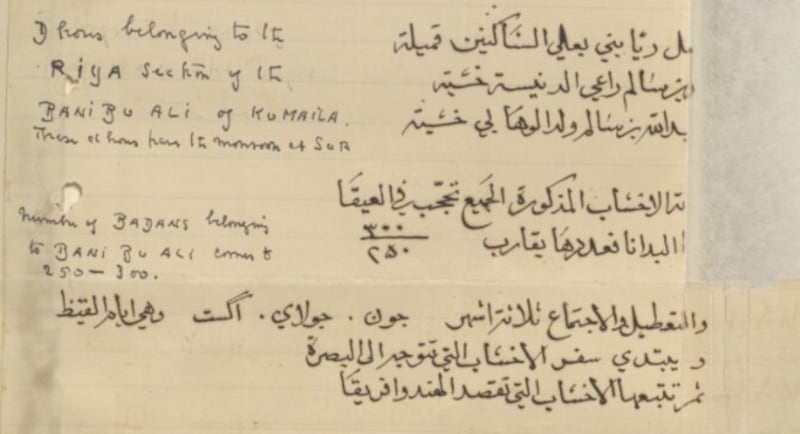 Dhows belonging to the
RIYA Section of the
BANI BU ALI of KUMAILA.
These dhows pass the monsoon at SUR
Number of BADANS belonging
to BANI BU ALI comes to
250 — 300.
بني بعلي الساكنين قميلة
بن سالم راعي الدنيسة خشبة
بن سالم ولد الوهابي خشبة
الاخشاب المذكورة الجميع تجحّب في العيقا
البدانا فعددها يقارب ٣٠٠
٢٥٠
والتعطيل والاجتماع ثلاثة اشهر جون . جولاي . اگست وهي ايام القيظ
و يبتدي سفر الاخشاب التي تتوجه الى البصرة
ثم تتبعها الاخشاب التي تقصد الهند وافريقا